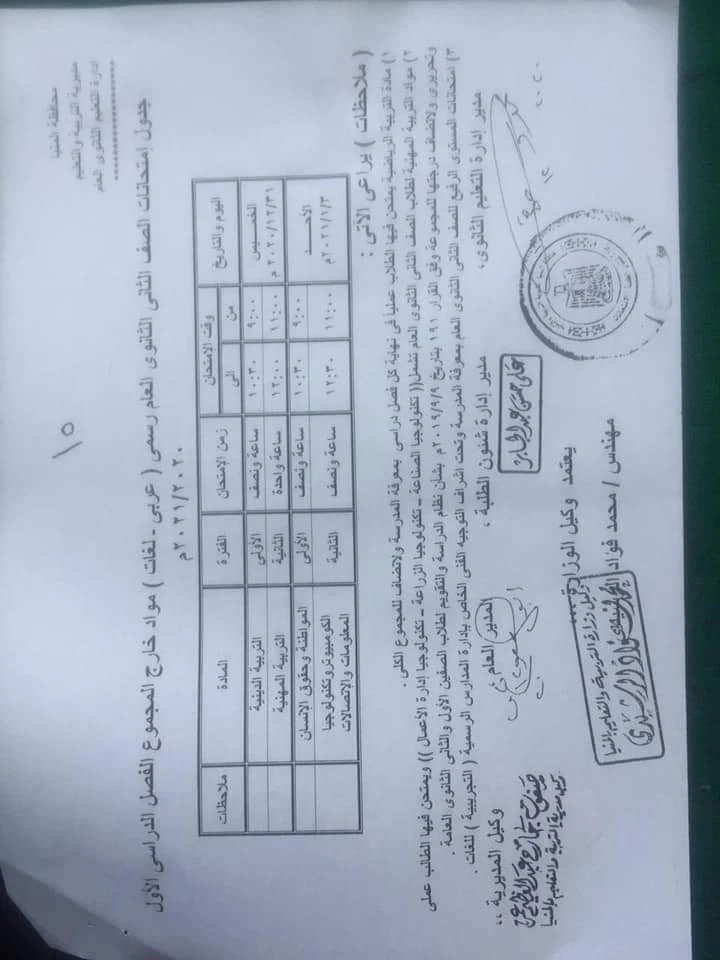 محافظة المنيا
مديرية التربية والتعليم
إدارة التعليم الثانوى العام
١٥
جدول إمتحانات الصف الثانى الثانوى العام رسمى ( عربى - لغات ) مواد خارج المجموع الفصل الدراسى الأول
٢٠٢١/٢٠٢٠م
اليوم والتاريخ | وقت الإمتحان | زمن الإمتحان | الفترة | المادة | ملاحظات
من | الى
الخميس ٢٠٢٠/١٢/٣١ م | ٩:٠٠ | ١٠:٣٠ | ساعة ونصف | الأولى | التربية الدينية
١١:٠٠ | ١٢:٠٠ | ساعة واحدة | الثانية | التربية المهنية
الأحـــد ٢٠٢١/١/٣م | ٩:٠٠ | ١٠:٣٠ | ساعة ونصف | الأولى | المواطنة وحقوق الإنسان
١١:٠٠ | ١٢:٣٠ | ساعة ونصف | الثانية | الكومبيوتر وتكنولوجيا المعلومات والإتصالات
( ملاحظات ) يراعى الآتى :
١) مادة التربية الرياضية يمتحن فيها الطلاب عمليا فى نهاية كل فصل دراسى بمعرفة المدرسة ولاتضاف للمجموع الكلى .
٢) مواد التربية المهنية لطلاب الصف الثانى الثانوى العام تشمل(( تكنولوجيا الصناعة - تكنولوجيا الزراعة - تكنولوجيا إدارة الأعمال )) ويمتحن فيها الطالب عملى
وتحريرى ولاتضاف درجتها للمجموعة وفق القرار ١٩١ بتاريخ ٢٠١٩/٩/٩م بشان نظام الدراسة والتقويم لطلاب الصفين الأول والثانى الثانوى العامة .
٣) امتحانات المستوى الرفيع للصف الثانى الثانوى العام بمعرفة المدرسة وتحت اشراف التوجيه الفنى الخاص بإدارة المدارس الرسمية ( التجريبية ) للغات .
مدير إدارة التعليم الثانوى، مدير إدارة شئون الطلبة ، المدير العام وكيل المديرية ،،
على حسن عبدالجابر
وكيل مديرية التربية والتعليم بالمنيا
يعتمد وكيل الوزارة
مهندس / محمد فواد
وكيل وزارة التربية والتعليم بالمنيا